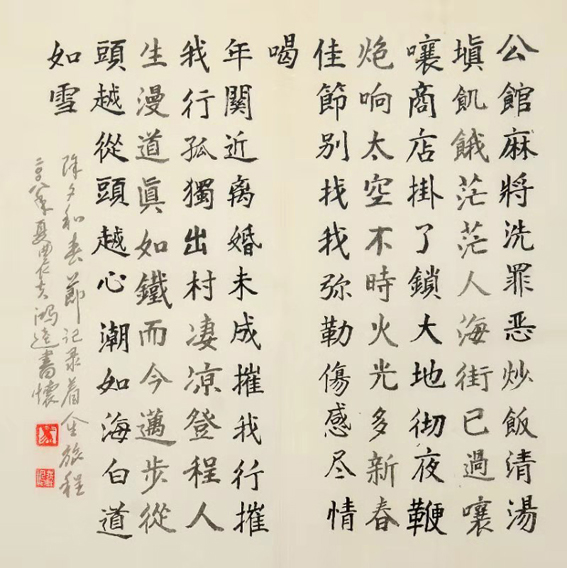 公館麻將洗罪恶炒飯清湯
填飢餓茫茫人海街已過嚷
嚷商店掛了鎖大地彻夜鞭
炮响太空不時火光多新春
佳節别找我弥勒傷感尽情
喝
年關近离婚未成摧我行摧
我行孤獨出村凄凉登程人
生漫道眞如鐵而今邁步從
頭越從頭越心潮如海白道
如雪
除夕和春節记录着全旅程
年夏鴻書懷